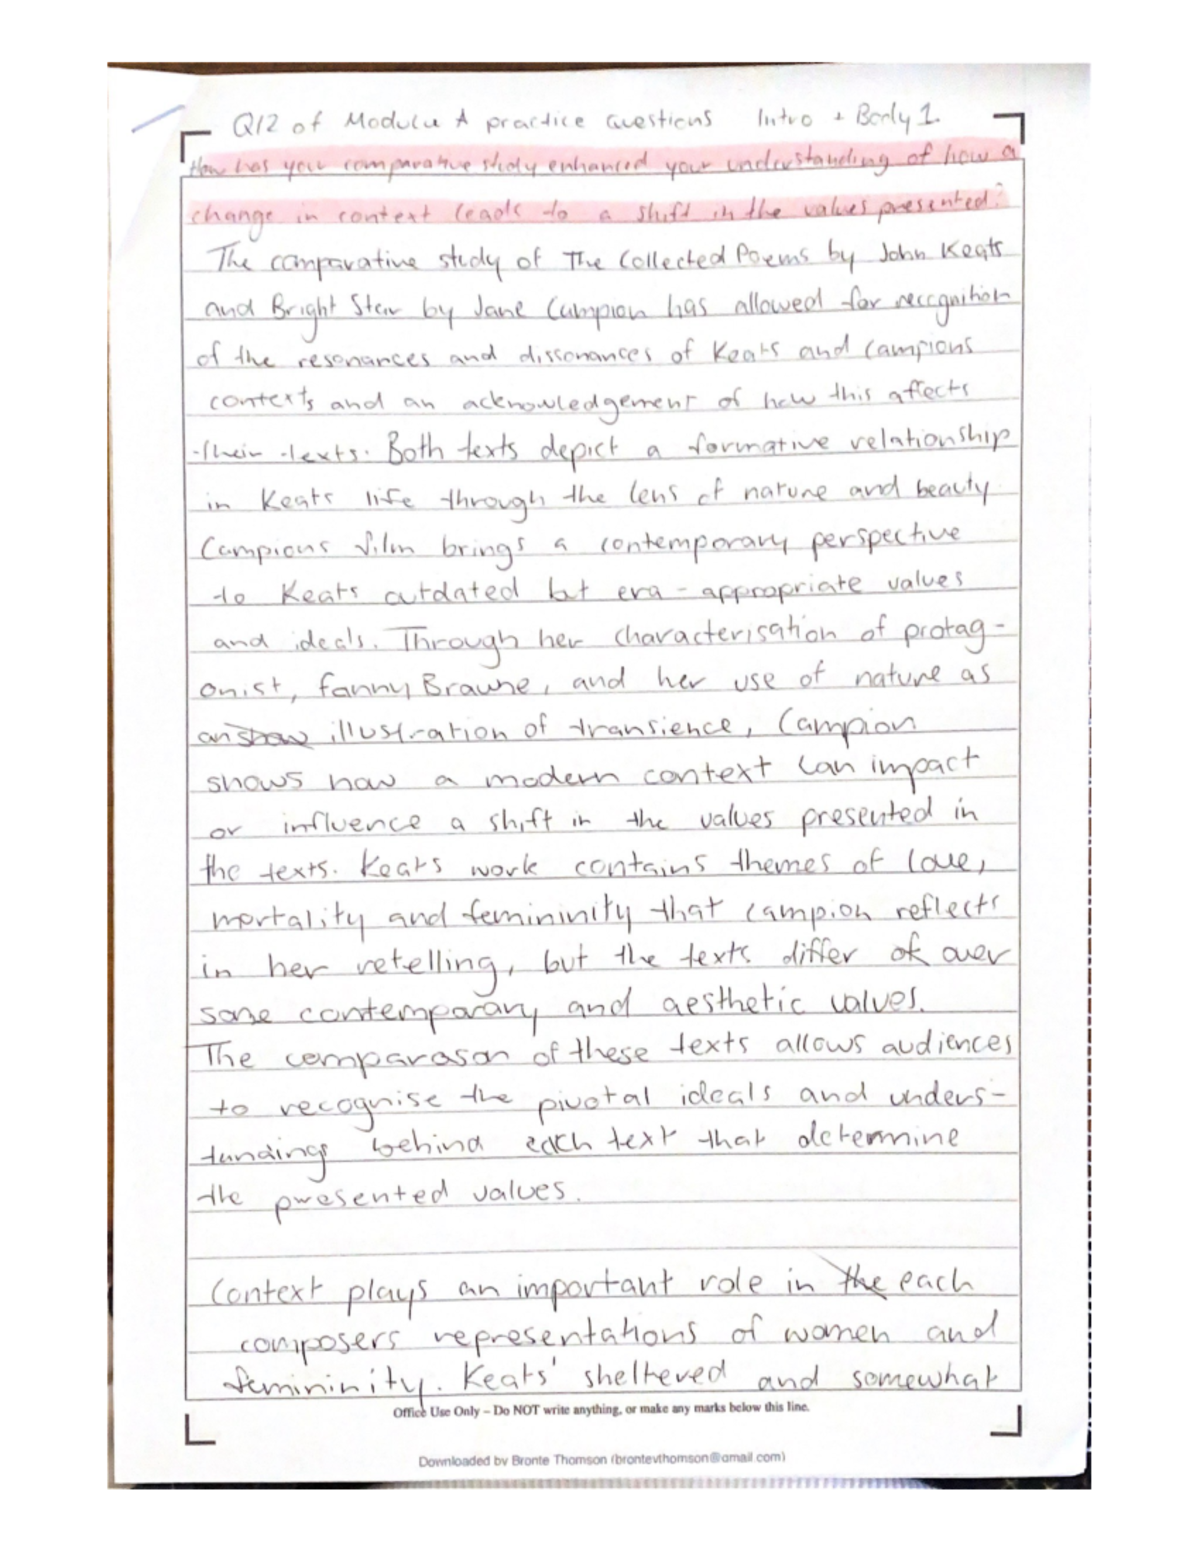 Q12 of Module A practice questions Intro + Body 1.
How has your comparative study enhanced your understanding of how a
change in context leads to a shift in the values presented?
The comparative study of The Collected Poems by John Keats
and Bright Star by Jane Campion has allowed for recognition
of the resonances and dissonances of Keats and Campions
contexts and an acknowledgement of how this affects
their texts. Both texts depict a formative relationship
in Keats life through the lens of nature and beauty.
Campions film brings a contemporary perspective
to Keats outdated but era-appropriate values
and ideals. Through her characterisation of protag-
onist, Fanny Brawne, and her use of nature as
an show illustration of transience, Campion
shows how a modern context can impact
or influence a shift in the values presented in
the texts. Keats work contains themes of love,
mortality and femininity that campion reflects
in her retelling, but the texts differ of over
some contemporary and aesthetic values.
The comparason of these texts allows audiences
to recognise the pivotal ideals and unders-
tandings behind each text that determine
the presented values.
Context plays an important role in the each
composers representations of women and
femininity. Keats' sheltered and somewhat
Office Use Only – Do NOT write anything, or make any marks below this line.
Downloaded by Bronte Thomson (brontevthomson@gmail.com)